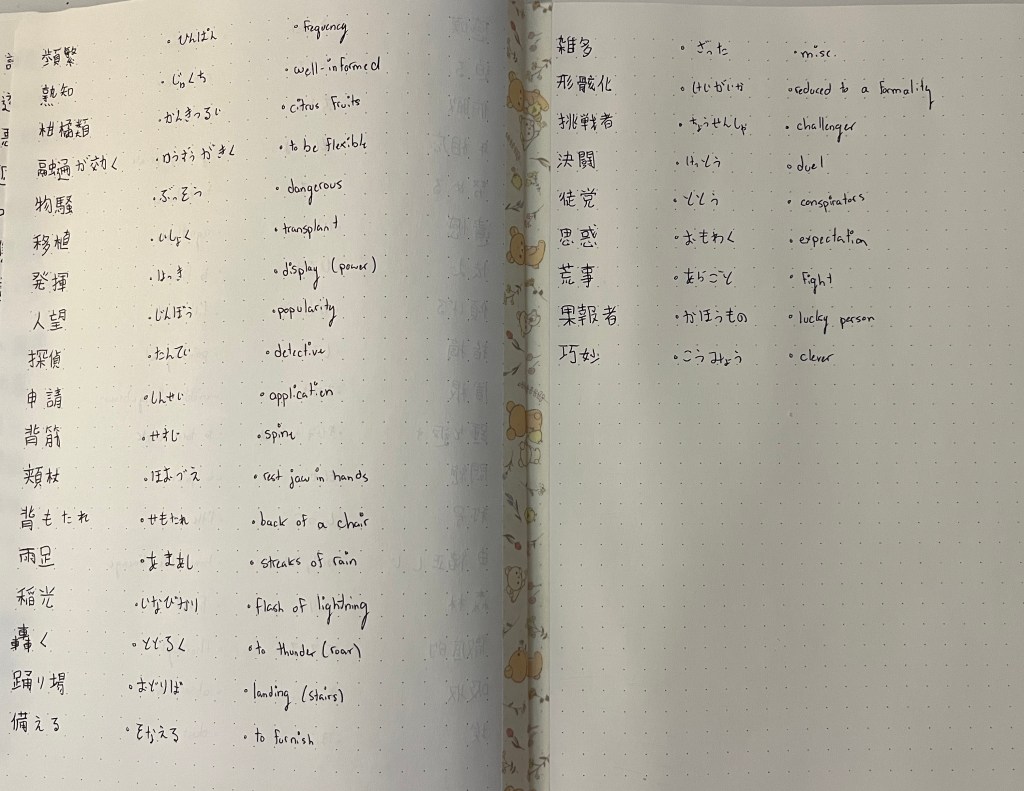 頻繁 ・ひんぱん ・frequency
熟知 ・じゅくち ・well-informed
柑橘類 ・かんきつるい ・citrus fruits
融通が効く ・ゆうずうがきく ・to be flexible
物騒 ・ぶっそう ・dangerous
移植 ・いしょく ・transplant
発揮 ・はっき ・display (power)
人望 ・じんぼう ・popularity
探偵 ・たんてい ・detective
申請 ・しんせい ・application
背筋 ・せすじ ・spine
頬杖 ・ほおづえ ・rest jaw in hands
背もたれ ・せもたれ ・back of a chair
雨足 ・あまあし ・streaks of rain
稲光 ・いなびかり ・flash of lightning
轟く ・とどろく ・to thunder (roar)
踊り場 ・おどりば ・landing (stairs)
備える ・そなえる ・to furnish
雑多 ・ざった ・misc.
形骸化 ・けいがいか ・reduced to a formality
挑戦者 ・ちょうせんしゃ ・challenger
決闘 ・けっとう ・duel
徒党 ・ととう ・conspirators
思惑 ・おもわく ・expectation
荒事 ・あらごと ・fight
果報者 ・かほうもの ・lucky person
巧妙 ・こうみょう ・clever